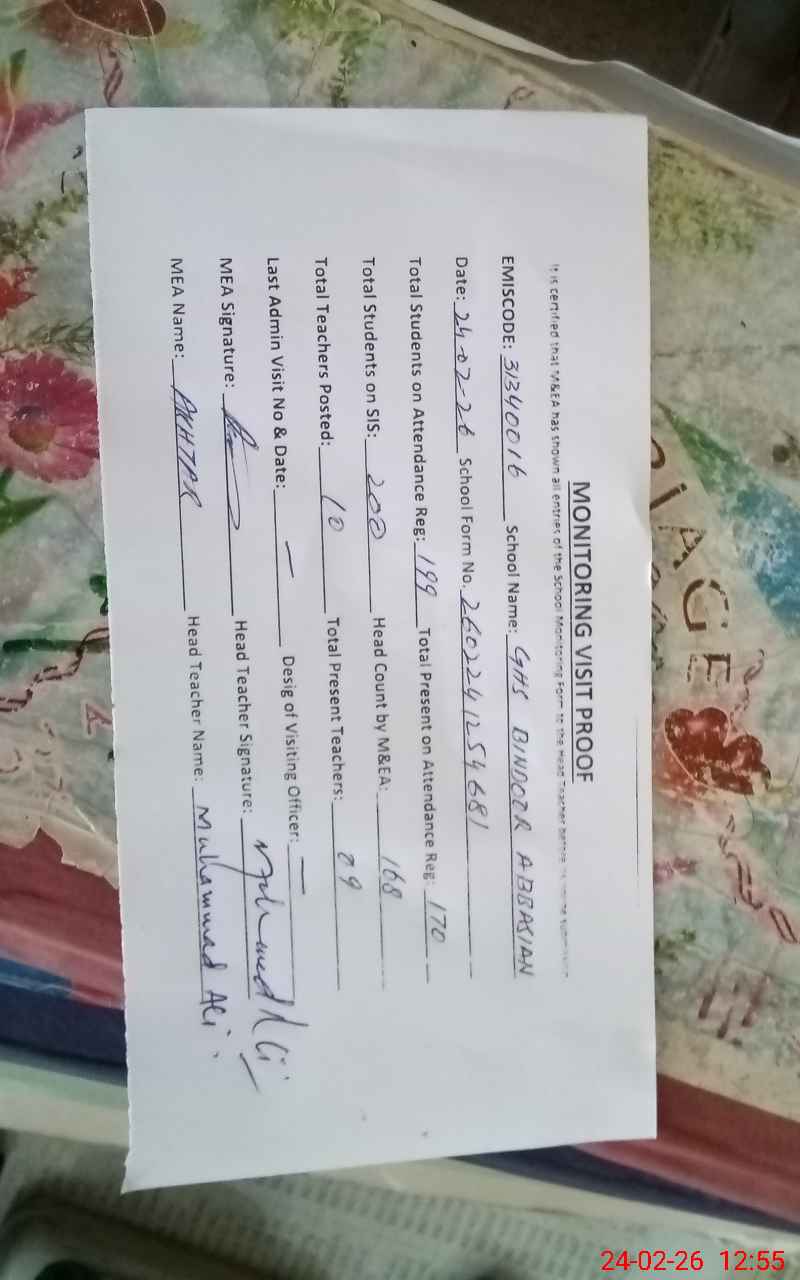 MONITORING VISIT PROOF
It is certified that M&EA has shown all entries of the School Monitoring Form to the Head Teacher before
EMISCODE: 31340016 School Name: GHS BINDOZR ABBASIAN
Date: 24-02-26 School Form No. 260224125 4681
Total Students on Attendance Reg: 199 Total Present on Attendance Reg: 170
Total Students on SIS: 200 Head Count by M&EA: 168
Total Teachers Posted: 10 Total Present Teachers: 09
Last Admin Visit No & Date: — Desig of Visiting Officer: —
MEA Signature: Head Teacher Signature: Muhammad Ali
MEA Name: AKHTAR Head Teacher Name: Muhammad Ali.
24-02-26 12:55